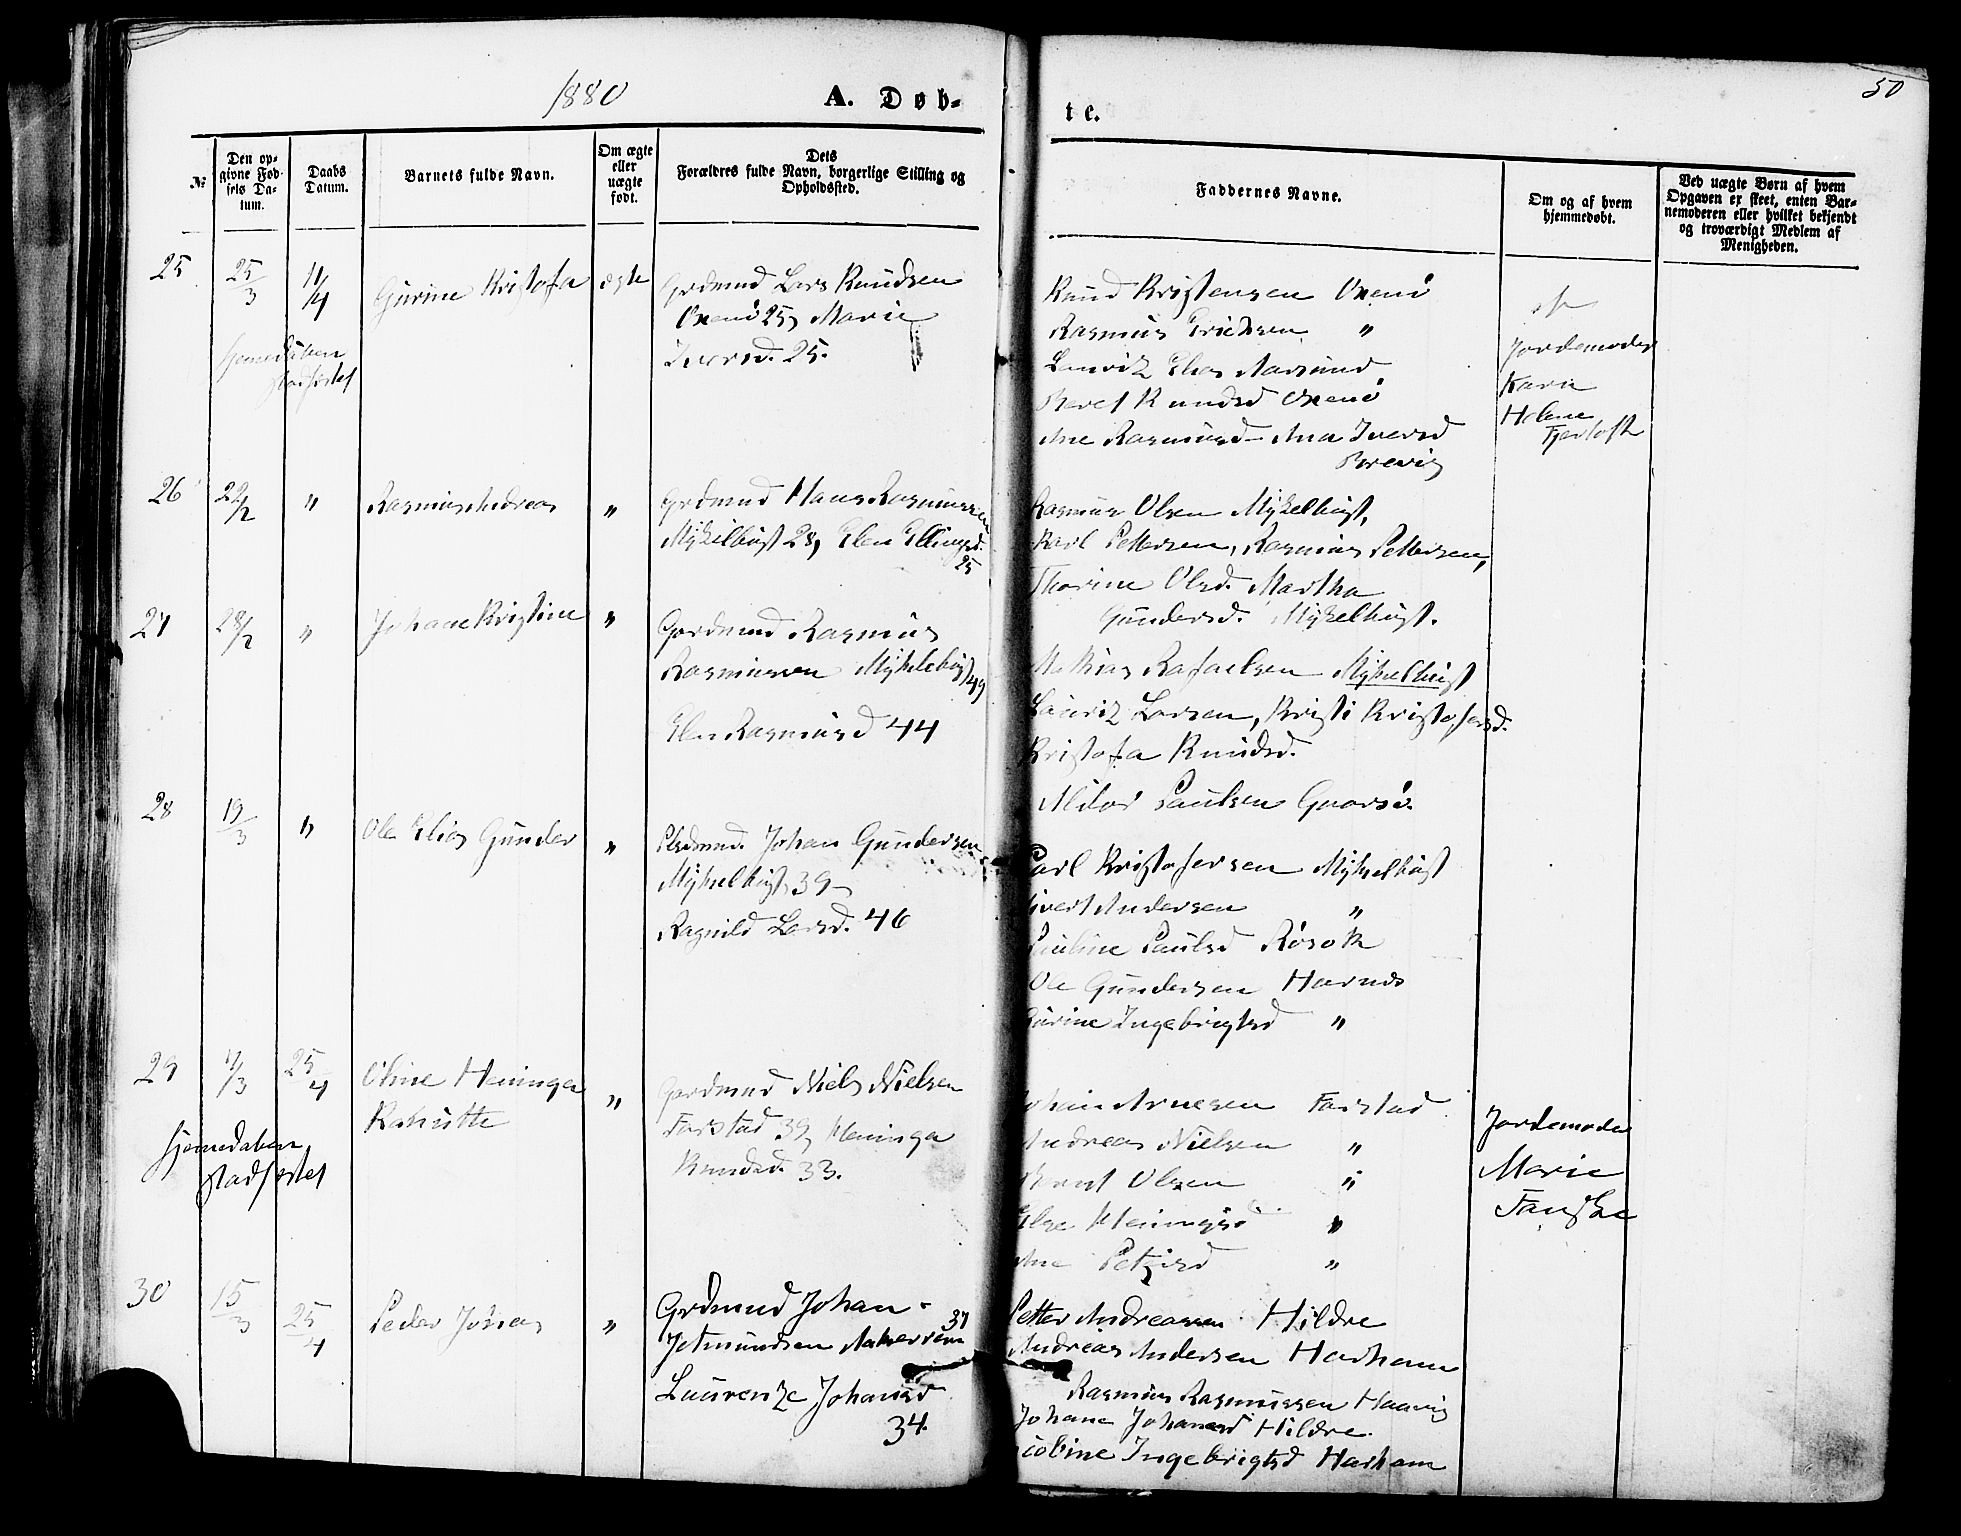 1880 A. Døb-
te. 50
№
Den op-
givne Fød-
sels Da-
tum.
Daabs
Datum.
Barnets fulde Navn.
Om ægte
eller
uægte
født.
Dets
Forældres fulde Navn, borgerlige Stilling og
Opholdssted.
Faddernes Navne.
Om og af hvem
hjemmedøbt.
Ved uægte Børn af hvem
Opgaven er skeet, enten Bar-
nemoderen eller hvilket bekjendt
og troværdigt Medlem af
Menigheden.
25 25/3 11/4 Gurine Kristofa ægte
Grdmnd Lars Knudsen
Uxenö 25, Marie
Iversd. 25.
hjemedaben
stadfæstet
Knud Kristensen Uxenö
Rasmus Erichsen "
Lauritz Elias Aarsund
Beret Knudsd Uxenö
Ane Rasmusd Ana Iversd
Brevig
af
Jordemoder
Karn
Helene
Fjertoft
26 22/2 " Rasmus Andreas "
Grdmnd Hans Rasmussen
Mykelbust 28, Elen Ellingsd.
25
Rasmus Olsen Mykelbust,
Karl Pettersen, Rasmus Pettersen,
Thorine Olsd. Martha
Gundersd. Mykelbust.
27 28/2 " Johane Kristine "
Gardmnd Rasmus
Rasmussen Myklebust 49
Elen Rasmusd 44
Mathias Rafaelsen Mykelbust
Lauritz Larsen, Kristi Kristofersd.
Kristofa Knudsd.
28 19/3 " Ole Elias Gunder "
Johan Gundersen
Mykelbust 39
Ragnild Larsd. 46
Paulsen
Karl Kristofersen Mykelbust
Sivert Andersen "
Pauline Paulsd Røsok
Ole Gundersen Harnes
Ingebrigtsd "
29 11/3 25/4 Oline Heninga "
Gardmnd Niels Nielsen
Farstad 39, Heninga
Knudsd. 33.
hjemedaben
stadfæstet
Johan Arnesen Farstad
Andreas Nielsen "
Bernt Olsen "
Else Heningsd "
Ane "
Jordemoder
Marie
Fauske
30 15/3 25/4 Peder Josias "
Grdmnd Johan
Jetmundsen 37
Laurentze Johansd
34
Petter Andreassen Hildre
Andreas Andersen Harham
Rasmus Rasmussen Haavig
Johane Johansd Hildre.
Jacobine Ingebrigtsd Harham